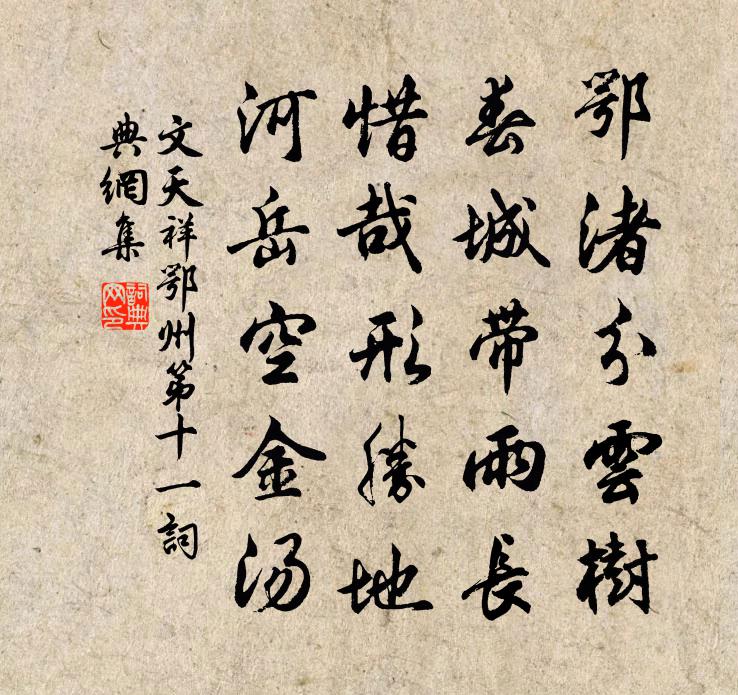 鄂渚分雲樹
春城带雨長
惜哉形勝地
河岳空金汤
文天祥鄂州第十一詞
典網集
詞典
网印